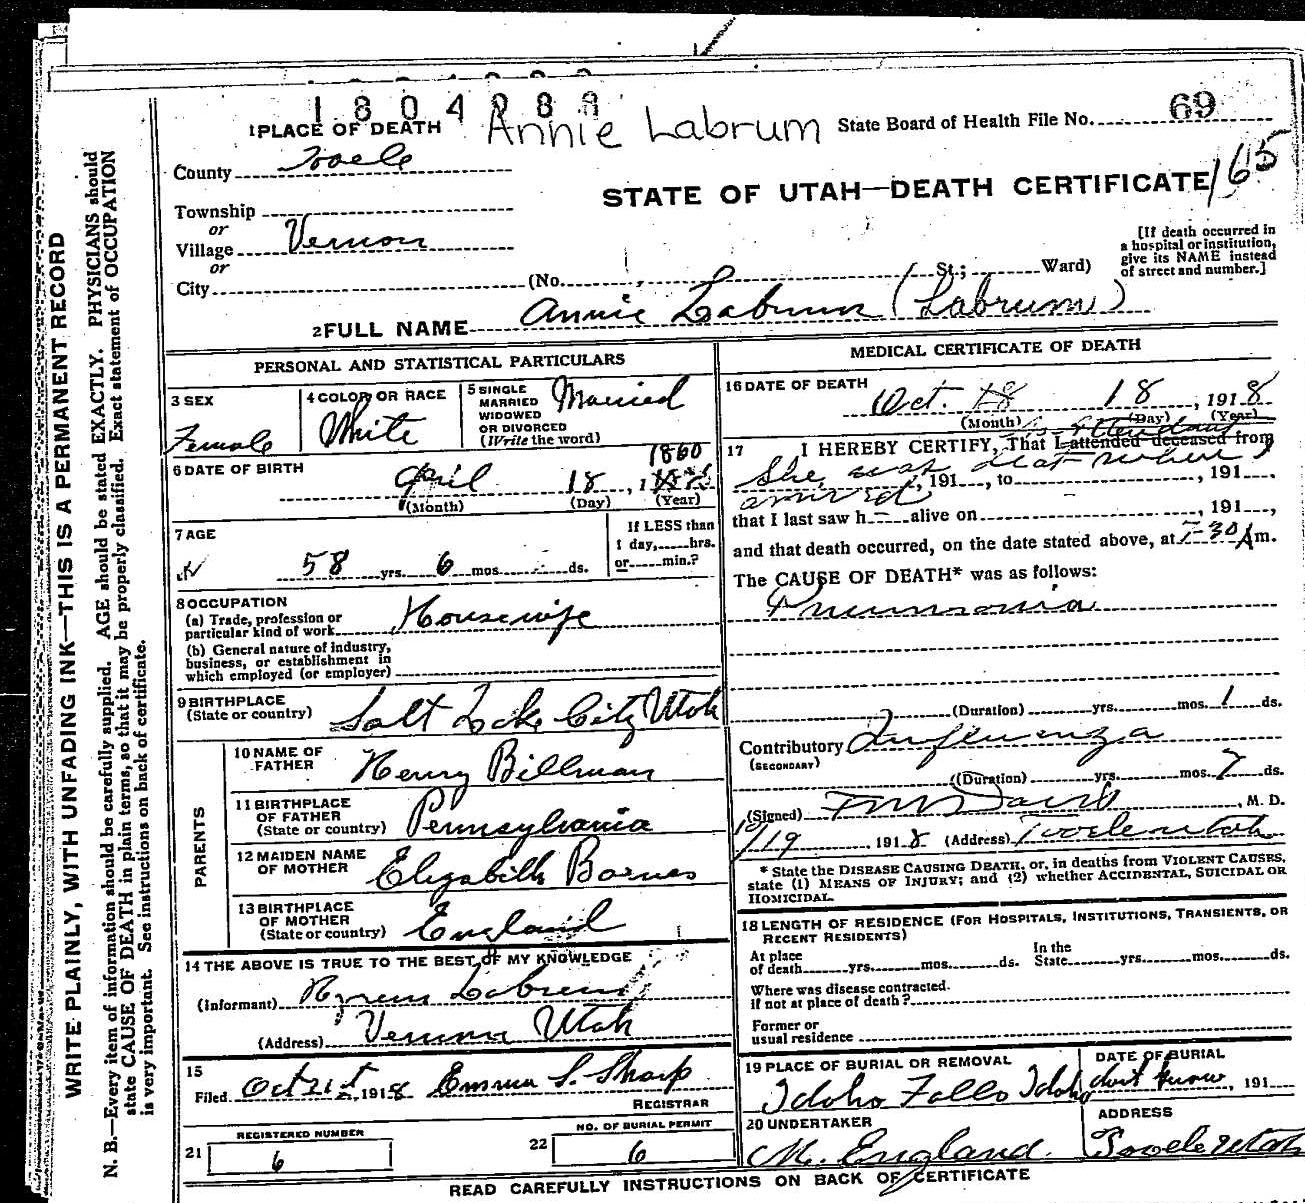 1804088
1 PLACE OF DEATH Annie Labrum State Board of Health File No. 69
County Tooele
165
STATE OF UTAH—DEATH CERTIFICATE
Township
or
Village Vernon
or
City (No. St.; Ward)
[If death occurred in
a hospital or institution,
give its NAME instead
of street and number.]
2 FULL NAME Annie Labrum (Labrum)
PERSONAL AND STATISTICAL PARTICULARS
3 SEX
Female
4 COLOR OR RACE
White
5 SINGLE
MARRIED
WIDOWED
OR DIVORCED
(Write the word)
Married
6 DATE OF BIRTH
1860
April 18, 1
(Month) (Day) (Year)
7 AGE
58 yrs. 6 mos. ds.
If LESS than
1 day, hrs.
or min.?
8 OCCUPATION
(a) Trade, profession or
particular kind of work Housewife
(b) General nature of industry,
business, or establishment in
which employed (or employer)
9 BIRTHPLACE
(State or country) Salt Lake City Utah
PARENTS
10 NAME OF
FATHER Henry Billman
11 BIRTHPLACE
OF FATHER
(State or country) Pennsylvania
12 MAIDEN NAME
OF MOTHER Elizabeth Barnes
13 BIRTHPLACE
OF MOTHER
(State or country) England
14 THE ABOVE IS TRUE TO THE BEST OF MY KNOWLEDGE
(Informant) Hyrum Labrum
(Address) Vernon Utah
15
Filed Oct 21st, 1918 Emma S. Sharp
REGISTRAR
REGISTERED NUMBER
21 6
NO. OF BURIAL PERMIT
22 6
MEDICAL CERTIFICATE OF DEATH
16 DATE OF DEATH
Oct. 18 18, 1918
(Month) (Day) (Year)
17 I HEREBY CERTIFY, That I attended deceased from
She was
, 191 , to , 191 ,
arrived
that I last saw h alive on , 191 ,
and that death occurred, on the date stated above, at 7-30 A m.
The CAUSE OF DEATH* was as follows:
Pneumonia
(Duration) yrs. mos. 1 ds.
Contributory Influenza
(SECONDARY)
(Duration) yrs. mos. 7 ds.
(Signed) F M Davis, M. D.
10/19, 1918 (Address) Tooele Utah
* State the DISEASE CAUSING DEATH, or, in deaths from VIOLENT CAUSES,
state (1) MEANS OF INJURY; and (2) whether ACCIDENTAL, SUICIDAL OR
HOMICIDAL.
18 LENGTH OF RESIDENCE (FOR HOSPITALS, INSTITUTIONS, TRANSIENTS, OR
RECENT RESIDENTS)
At place
of death yrs. mos. ds.
In the
State yrs. mos. ds.
Where was disease contracted.
if not at place of death?
Former or
usual residence
19 PLACE OF BURIAL OR REMOVAL
Idaho Falls Idaho
DATE OF BURIAL
dont know, 191
20 UNDERTAKER
M. England
ADDRESS
Tooele Utah
READ CAREFULLY INSTRUCTIONS ON BACK OF CERTIFICATE
WRITE PLAINLY, WITH UNFADING INK—THIS IS A PERMANENT RECORD
N. B.—Every item of information should be carefully supplied. AGE should be stated EXACTLY. PHYSICIANS should
state CAUSE OF DEATH in plain terms, so that it may be properly classified. Exact statement of OCCUPATION
is very important. See instructions on back of certificate.